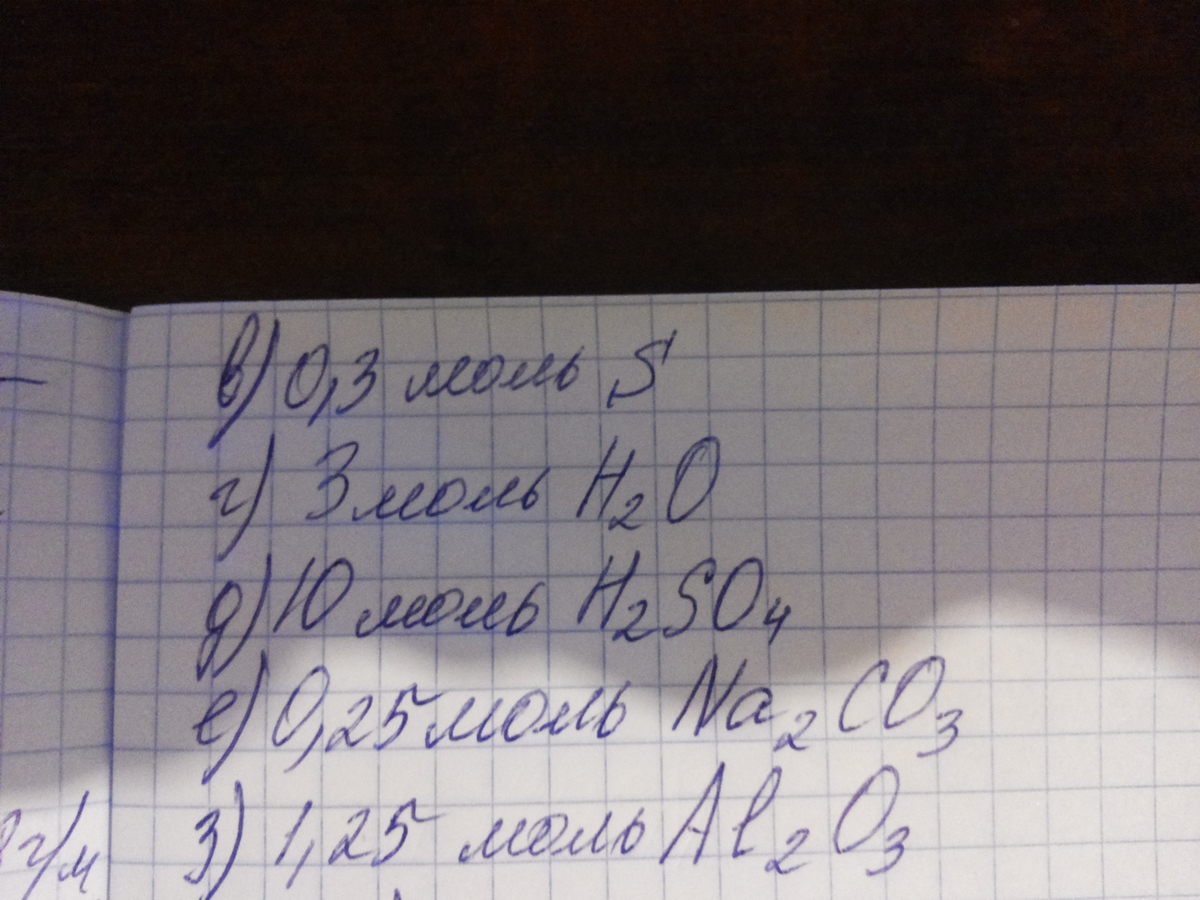 в) 0,3 моль S
г) 3 моль H₂O
д) 10 моль H₂SO₄
е) 0,25 моль Na₂CO₃
з) 1,25 моль Al₂O₃
г/м